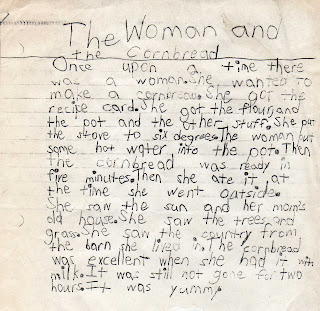 The Woman and
the Cornbread
Once upon a time there
was a woman. She wanted to
make a cornbread. She got the
recise card. She got the flour and
the pot and the other stuff. She put
the stove to six degrees. The woman put
some hot water into the pot. Then
the cornbread was ready in
five minutes. Then she ate it, at
the time she went outside.
She saw the sun and her mom's
old house. She saw the trees and
grass. She saw the country from
the barn she lived in. The cornbread
was excellent when she had it with
milk. It was still not gone for two
hours. It was yummy